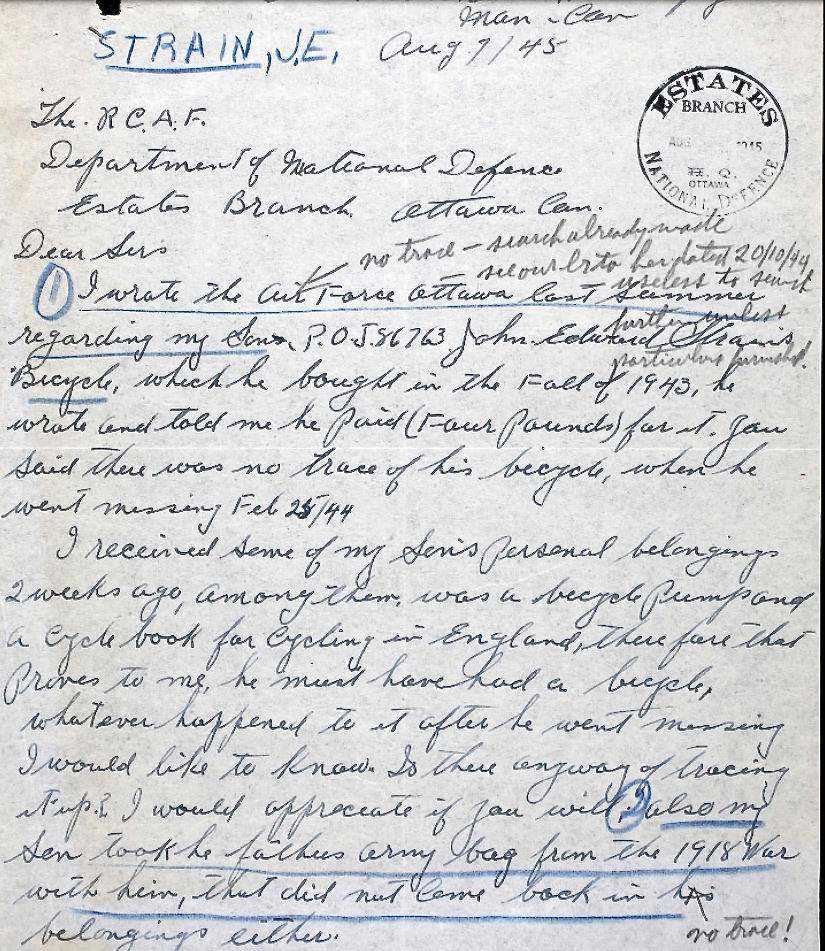 Man - Can
STRAIN, J.E. Aug 7/45
ESTATES
BRANCH
AUG 1945
H. Q.
OTTAWA
NATIONAL DEFENCE
The. R C. A. F.
Department of National Defence
Estates Branch. Ottawa Can.
Dear Sirs
no trace - search already made
see our ltr to her dated 20/10/44
useless to search
further unless
particulars furnished.
1 I wrote the Air Force Ottawa last summer
regarding my Son, P.O. J.86763 John. Edward Strain's
Bicycle, which he bought in the Fall of 1943, he
wrote and told me he Paid (Four Pounds) for it. You
said there was no trace of his bicycle, when he
went missing Feb 25/44
I received some of my Son's Personal belongings
2 weeks ago, among them, was a bicycle Pump and
a Cycle book for Cycling in England, therefore that
Proves to me, he must have had a bicycle,
whatever happened to it after he went missing
I would like to know. Is there anyway of tracing
it up? I would appreciate if you will, 2 also my
Son took he fathers army bag from the 1918 War
with him, that did not Come back in his
belongings either.
no trace!